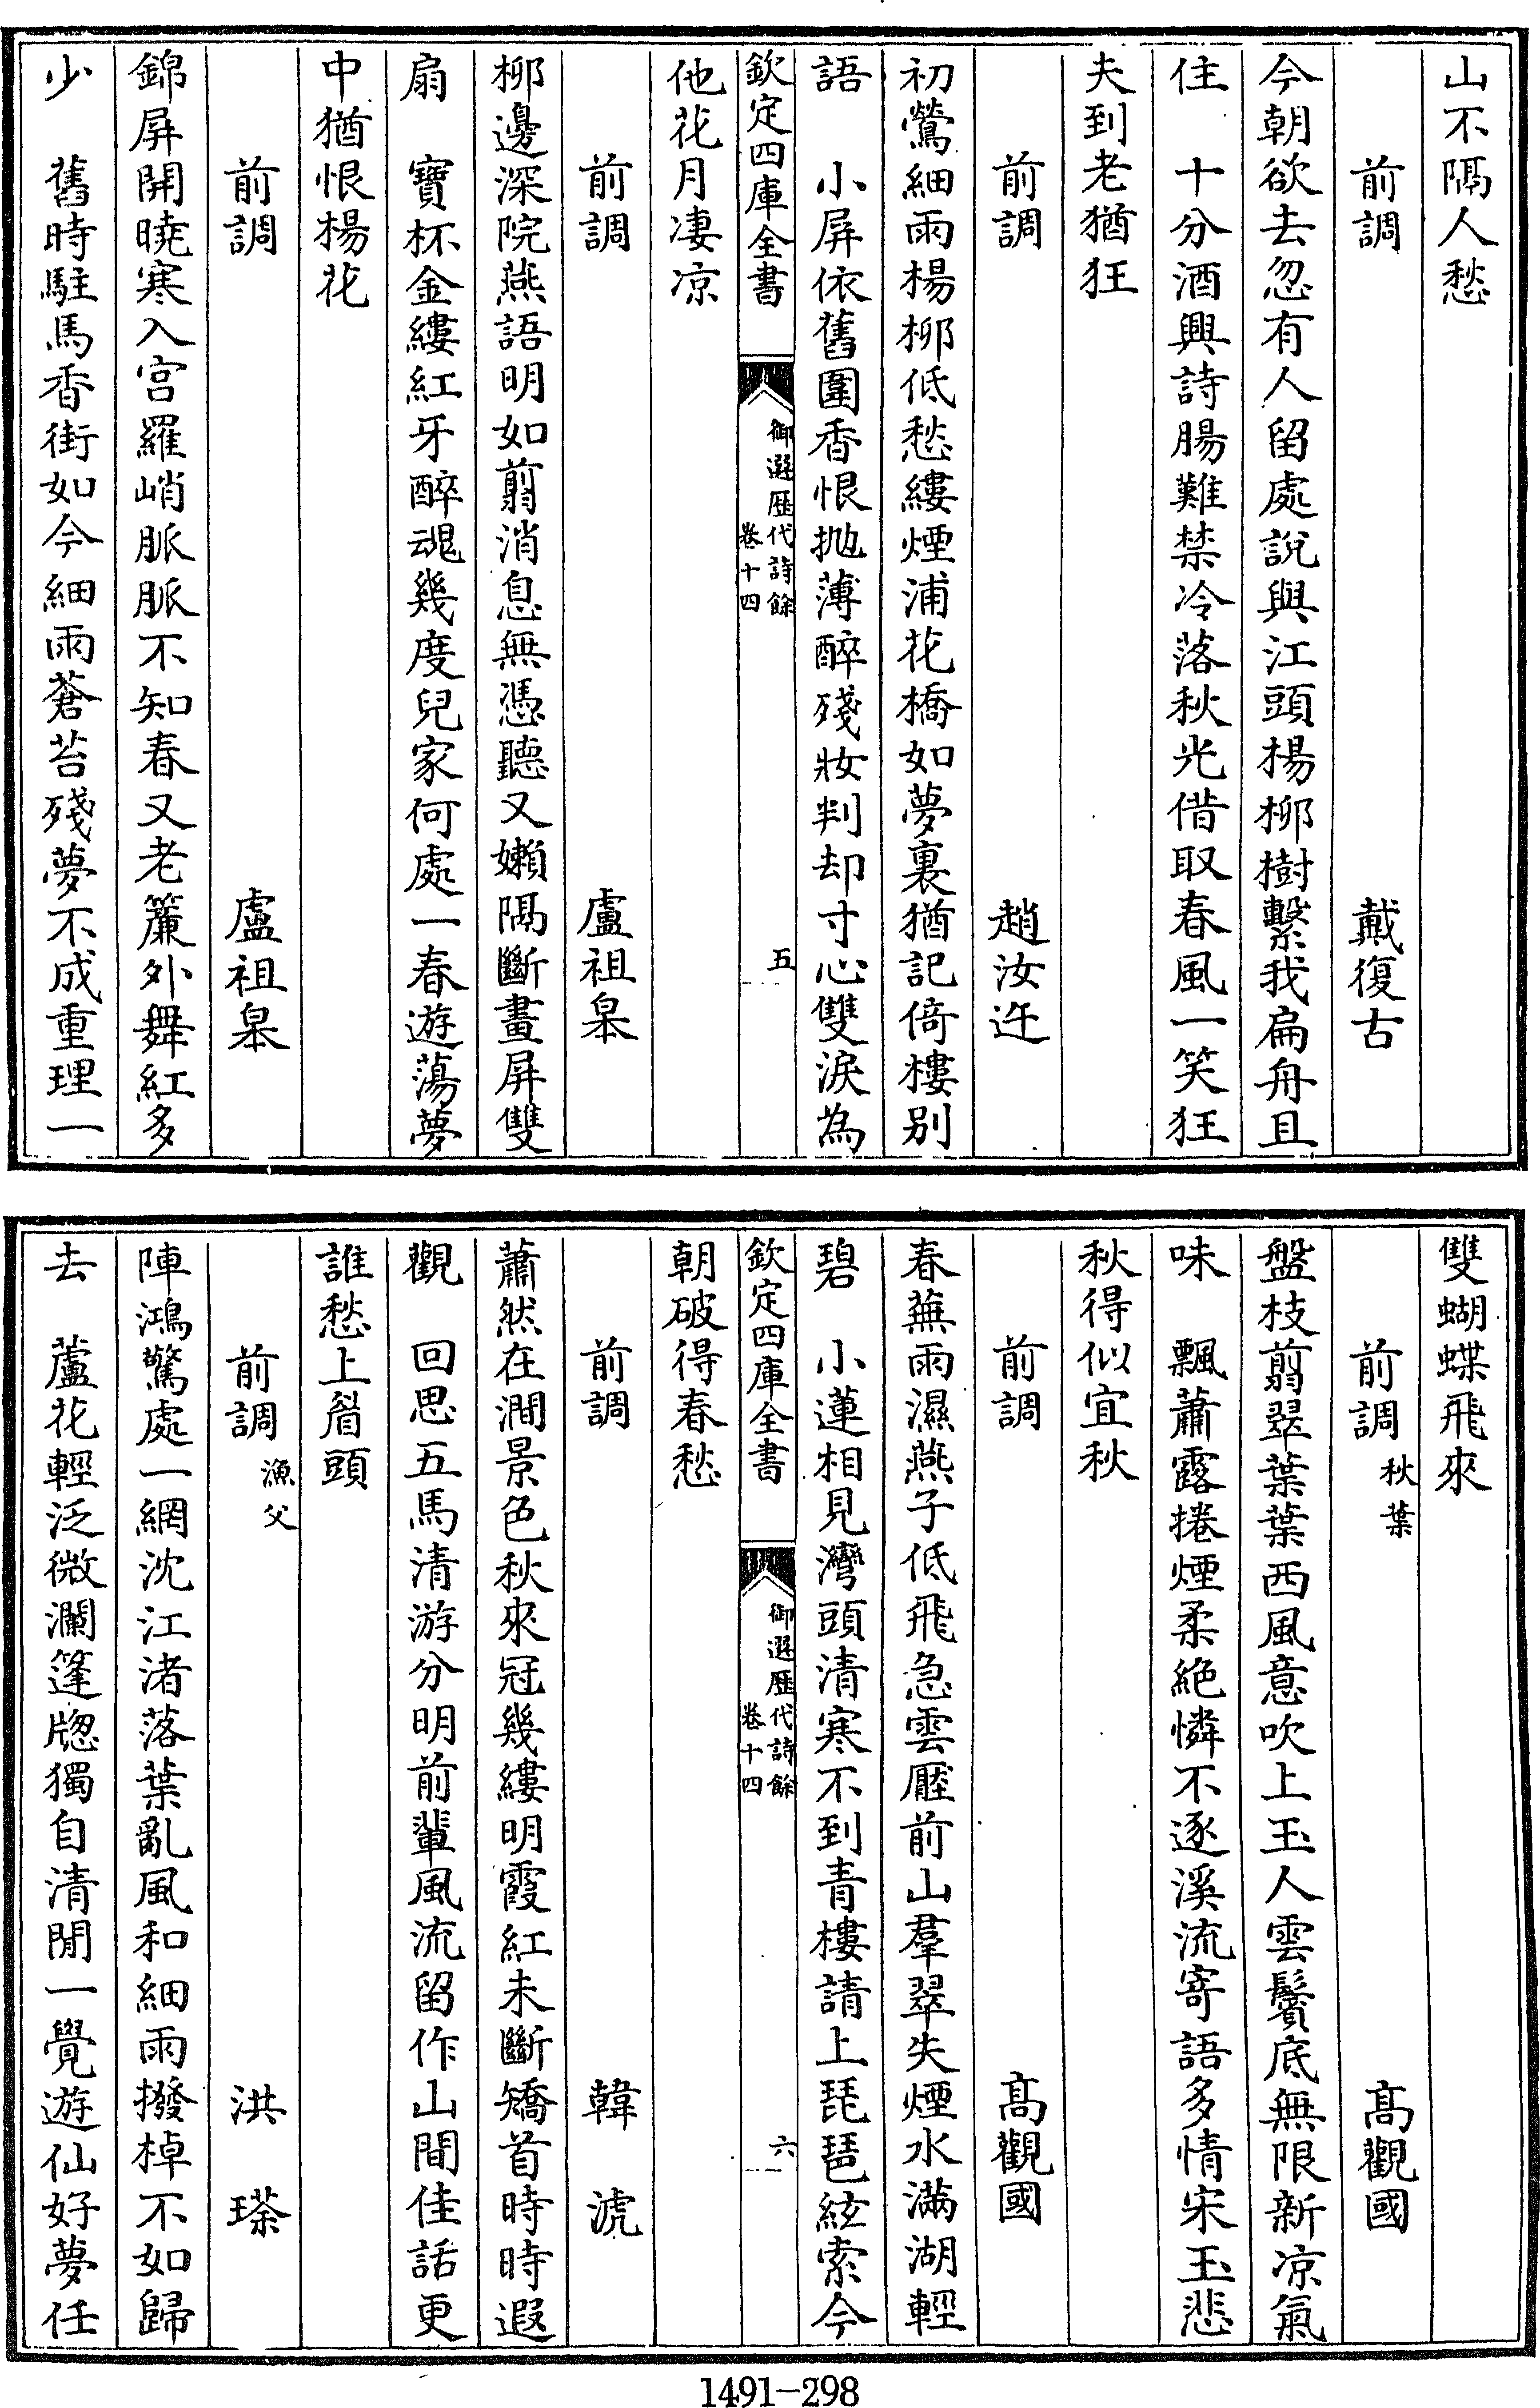 山不隔人愁
前調　戴復古
今朝欲去忽有人留處說與江頭楊柳樹繫我扁舟且
住　十分酒興詩腸難禁冷落秋光借取春風一笑狂
夫到老猶狂
前調　趙汝迕
初鶯細雨楊柳低愁縷煙浦花橋如夢裏猶記倚樓别
語　小屏依舊圍香恨抛薄醉殘妝判却寸心雙淚為
欽定四庫全書　御選歷代詩餘　卷十四　五
他花月凄凉
前調　盧祖皋
柳邊深院燕語明如翦消息無憑聽又嬾隔斷畫屏雙
扇　寶杯金縷紅牙醉魂幾度兒家何處一春遊蕩夢
中猶恨楊花
前調　盧祖皋
錦屏開曉寒入宫羅峭脈脈不知春又老簾外舞紅多
少　舊時駐馬香街如今細雨蒼苔殘夢不成重理一
雙蝴蝶飛來
前調　秋葉　高觀國
盤枝翦翠葉葉西風意吹上玉人雲鬢底無限新凉氣
味　飄蕭露捲煙柔絶憐不逐溪流寄語多情宋玉悲
秋得似宜秋
前調　高觀國
春蕪雨濕燕子低飛急雲壓前山羣翠失煙水滿湖輕
碧　小蓮相見灣頭清寒不到青樓請上琵琶絃索今
欽定四庫全書　御選歷代詩餘　卷十四　六
朝破得春愁
前調　韓淲
蕭然在澗景色秋來冠幾縷明霞紅未斷矯首時時遐
觀　回思五馬清游分明前輩風流留作山間佳話更
誰愁上眉頭
前調　漁父　洪瑹
陣鴻驚處一網沈江渚落葉亂風和細雨撥棹不如歸
去　蘆花輕泛微瀾篷牕獨自清閒一覺遊仙好夢任
1491-298